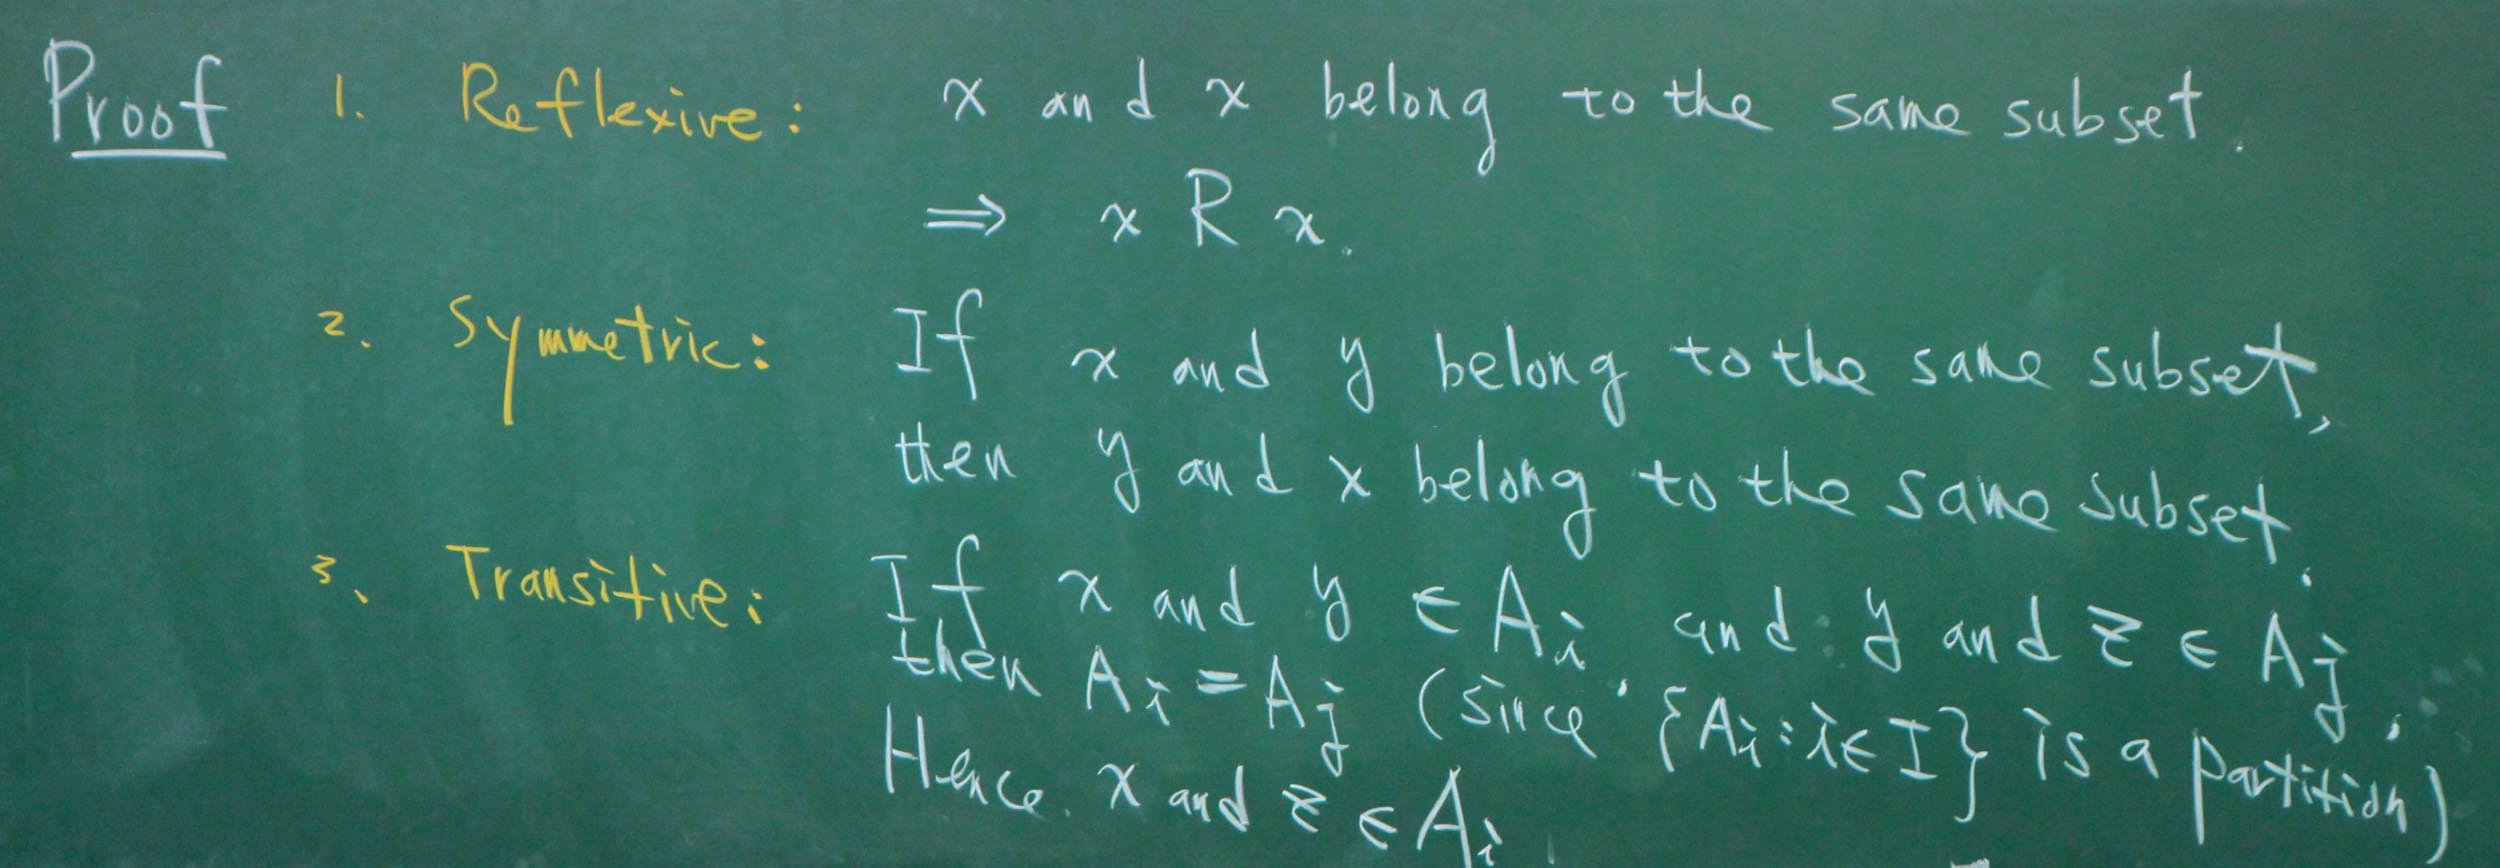 Proof 1. Reflexive: x and x belong to the same subset.
⇒ x R x.
2. Symmetric: If x and y belong to the same subset,
then y and x belong to the same subset.
3. Transitive: If x and y ∈ Aᵢ and y and z ∈ Aⱼ,
then Aᵢ = Aⱼ (since {Aᵢ : i ∈ I} is a partition)
Hence x and z ∈ Aᵢ.